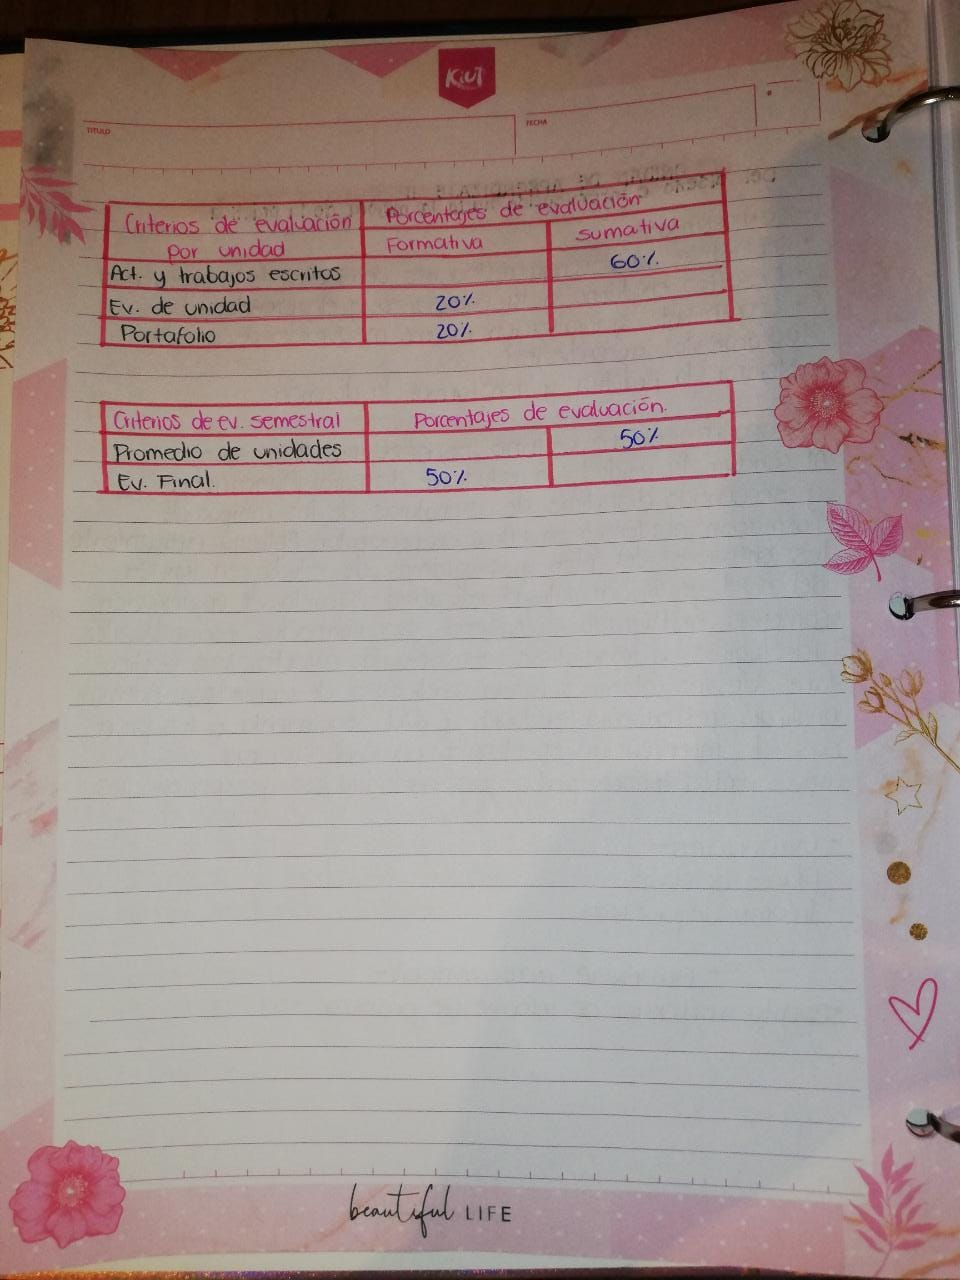 Kiut
TITULO
FECHA
Criterios de evaluación por unidad Porcentajes de evaluación
Formativa Sumativa
Act. y trabajos escritos 60%
Ev. de unidad 20%
Portafolio 20%
Criterios de ev. semestral Porcentajes de evaluación.
Promedio de unidades 50%
Ev. Final. 50%
beautiful LIFE